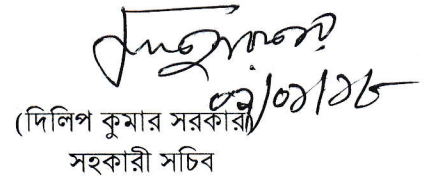 ০৯/০১/১৮
(দিলিপ কুমার সরকার)
সহকারী সচিব